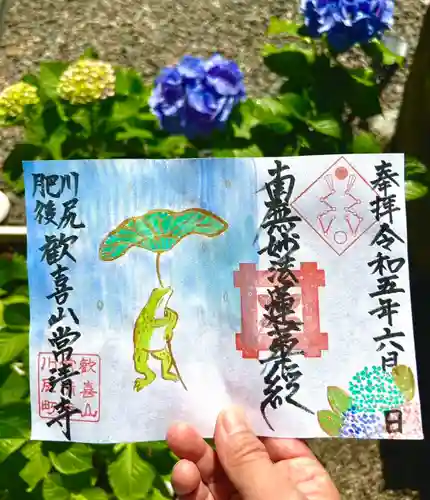 奉拝 令和五年六月 日
南無妙法蓮華経
肥後
川尻
歓喜山 常清寺
歓喜山
川尻町